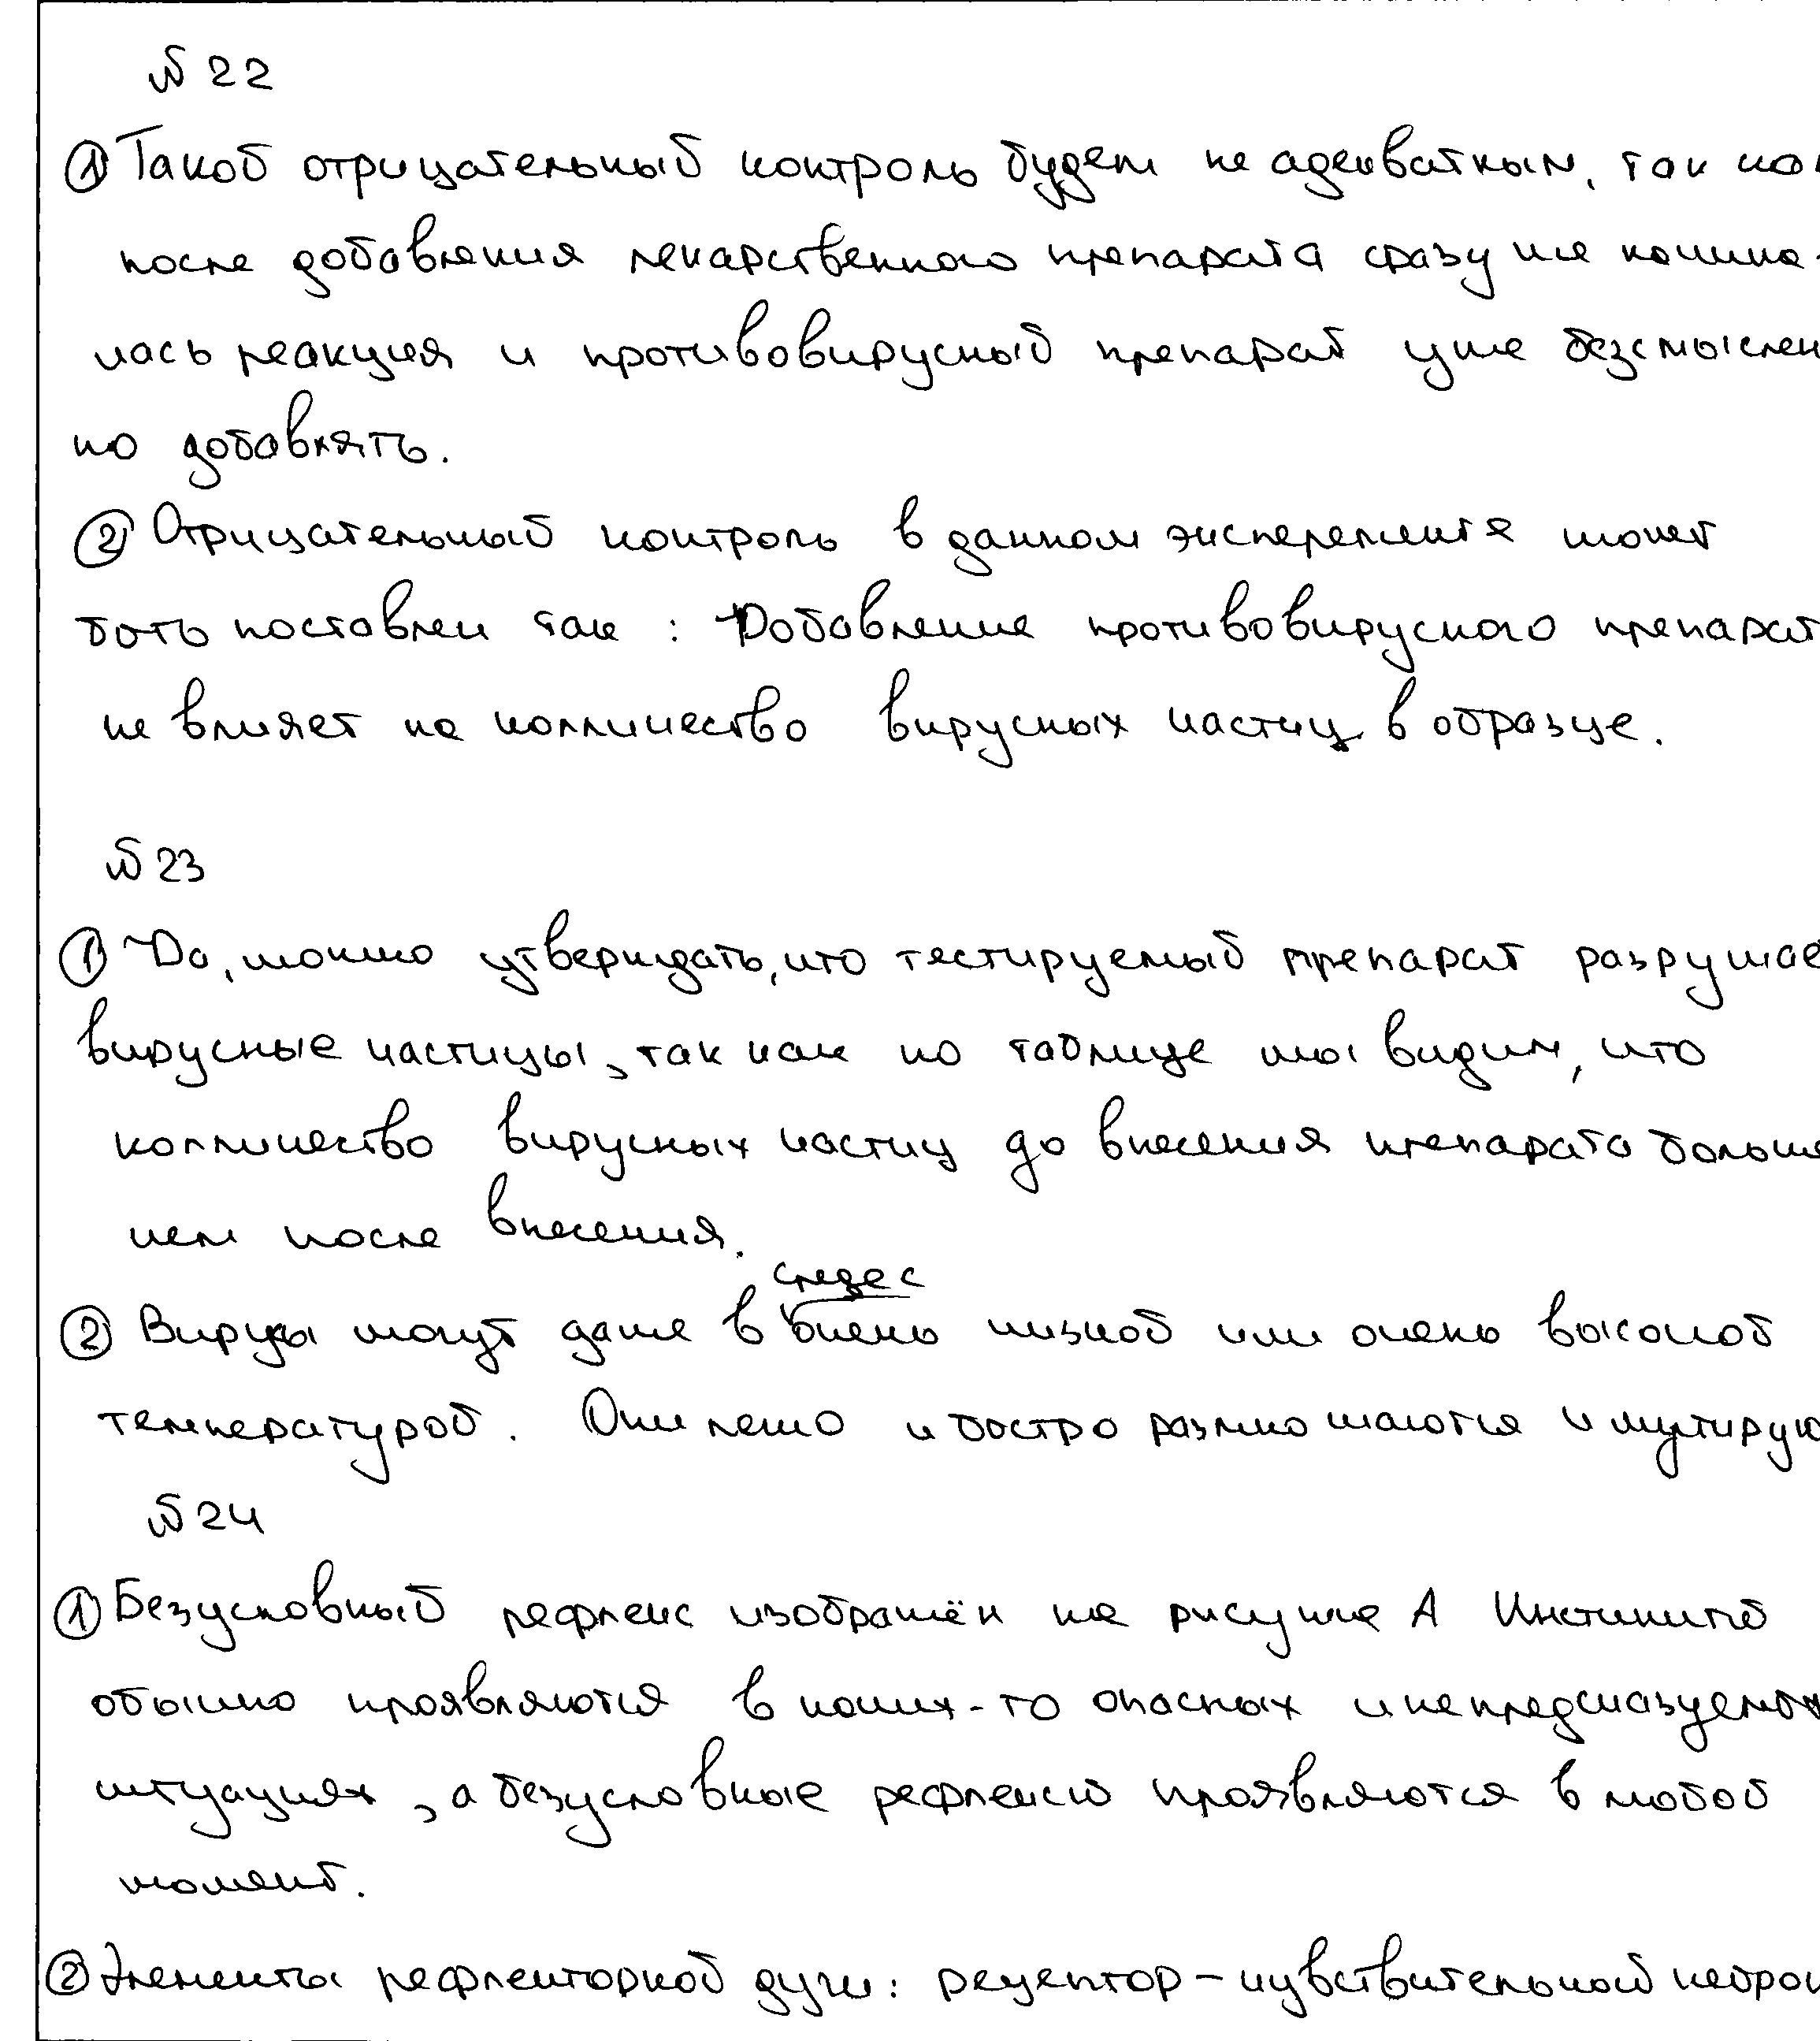 № 22
① Такой отрицательный контроль будет не адекватным, так ка
после добавления лекарственного препарата сразу же начина-
лась реакция и противовирусный препарат уже безсмыслен
но добавлять.
② Отрицательный контроль в данном эксперементе может
быть поставлен так : Добавление противовирусного препарат
не влияет на колличество вирусных частиц в образце.
№ 23
① Да, можно утверждать, что тестируемый препарат разрушае
вирусные частицы, так как по таблице мы видим, что
колличество вирусных частиц до внесения препарата больше
чем после внесения.
среде с
② Вирусы могут даже в очень низкой или очень высокой
температурой. Они легко и быстро размножаются и мутирую
№ 24
① Безусловный рефлекс изображён на рисунке А Инстинкты
обычно проявляются в каких-то опасных и непредсказуемых
ситуациях, а безусловные рефлексы проявляются в любой
момент.
② Элементы рефлекторной дуги: рецептор – чувствительной нейрон